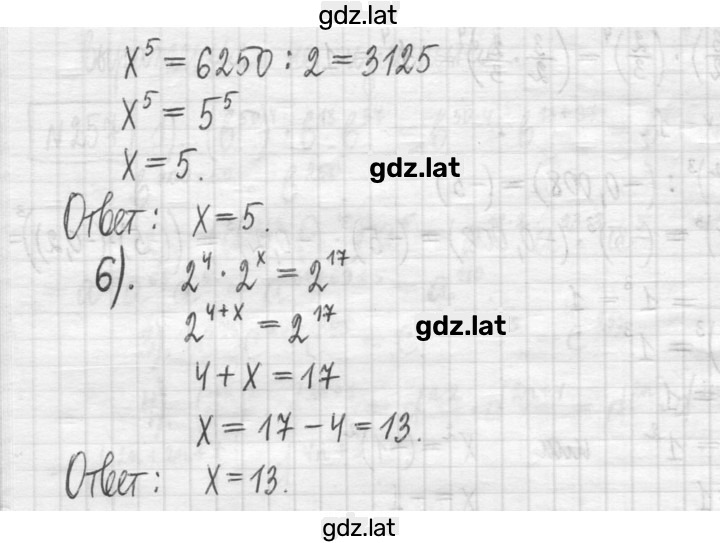 gdz.lat
x⁵ = 6250 : 2 = 3125
x⁵ = 5⁵
x = 5.
gdz.lat
Ответ: x = 5.
б). 2⁴ · 2ˣ = 2¹⁷
2⁴⁺ˣ = 2¹⁷
gdz.lat
4 + x = 17
x = 17 - 4 = 13.
Ответ: x = 13.
gdz.lat